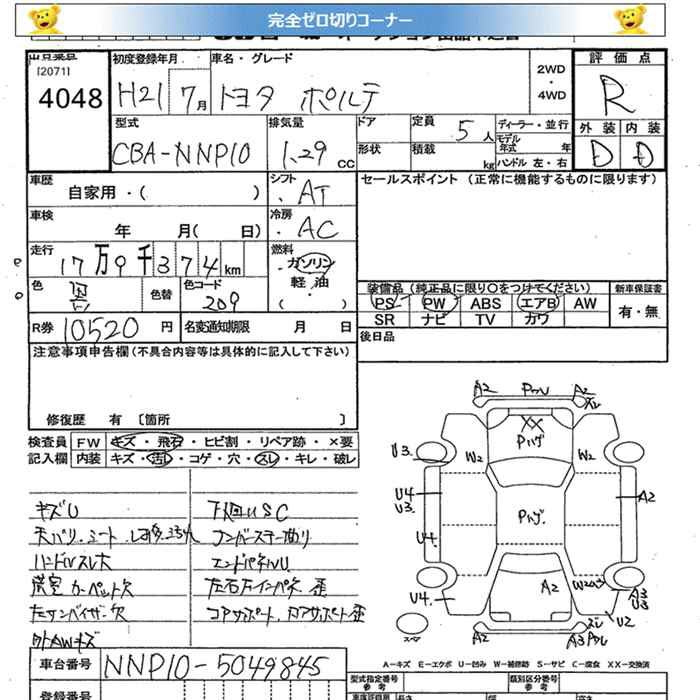 完全ゼロ切りコーナー
[2071]
4048
初度登録年月
H21 7月
車名・グレード
トヨタ ポルテ
2WD
・
4WD
評価点
R
外装 内装
D D
型式
CBA-NNP10
排気量
1.29 CC
ドア
形状
定員 5人
積載 kg
ディーラー・並行
モデル年式 年
ハンドル 左・右
車歴
自家用・( )
シフト
・AT
セールスポイント (正常に機能するものに限ります)
車検
年 月( 日)
冷房
・AC
走行
17万9千374km
燃料
・ガソリン
軽・油
・( )
色
黒
色替
色コード
209
装備品 (純正品に限り○をつけてください)
PS PW ABS エアB AW
SR ナビ TV カワ
新車保証書
有・無
R券 10520 円
名変通知期限 月 日
後日品
注意事項申告欄(不具合内容等は具体的に記入して下さい)
修復歴 有 〔箇所 〕
検査員 FW キズ・飛石・ヒビ割・リペア跡・×要
記入欄 内装 キズ・汚れ・コゲ・穴・スレ・キレ・破レ
キズU
ハンドルスレ大
下廻りUSC
エンドパネルU
外AWキズ
A2 A2
XX
Pハゲ
U3 W2 W2
U4
U3
A2
Pハゲ
U4
A2
U4
A3
U3
U2
A2 A3
スペア
A-キズ E-エクボ U-凹み W-補修跡 S-サビ C-腐食 XX-交換済
車台番号 NNP10-5049845
登録番号
型式指定番号
参考
類別区分番号
参考